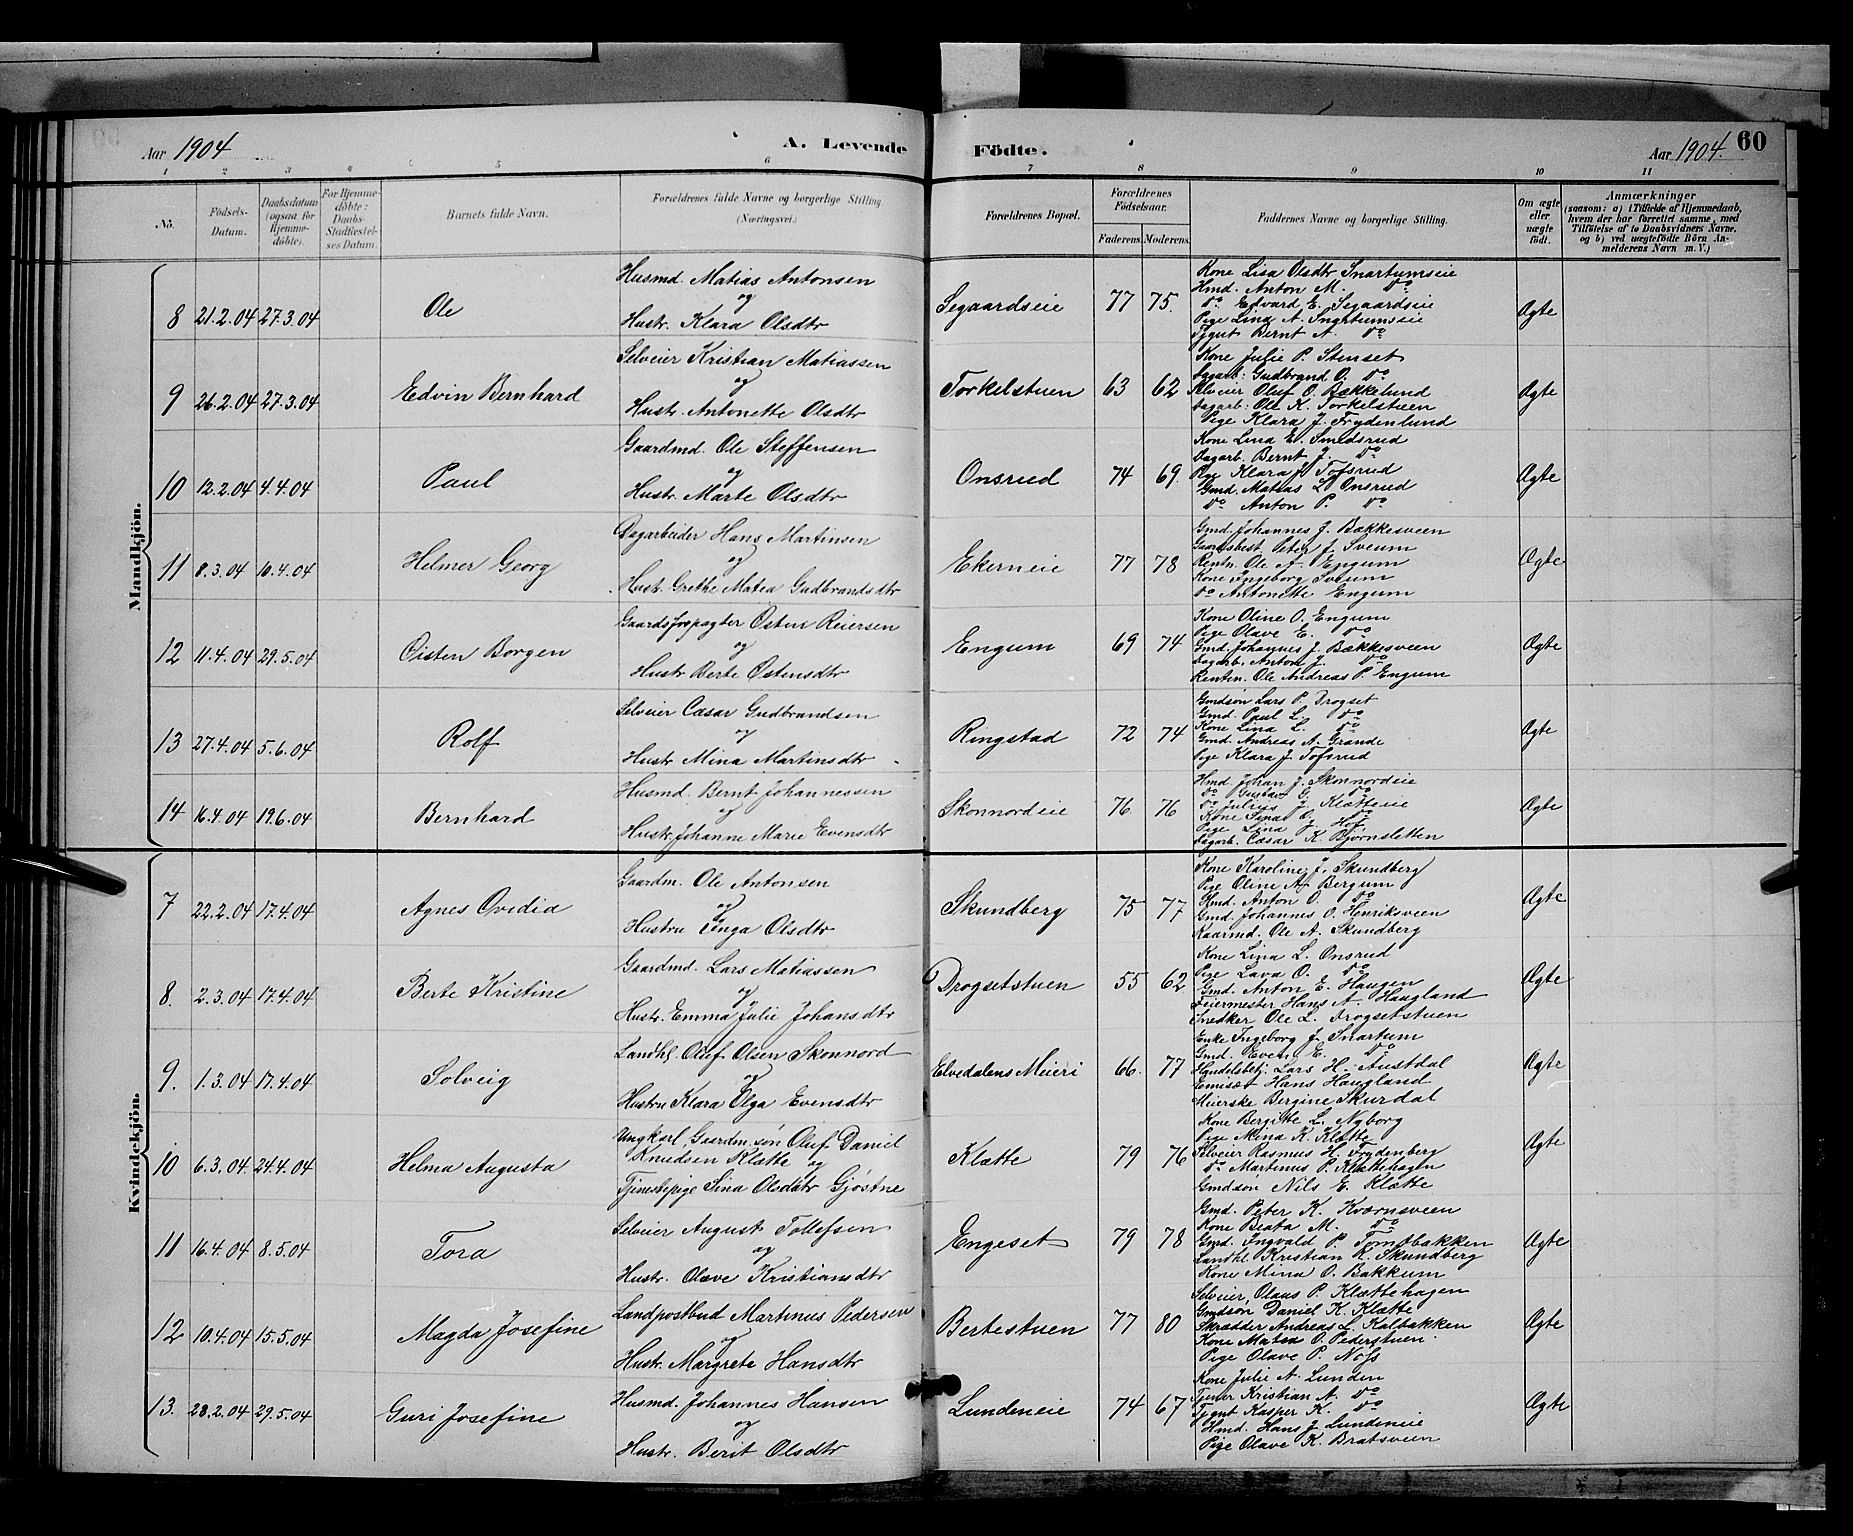 Aar 1904
A. Levende Födte.
Aar 1904.
60
1 2 3 4 5 6 7 8 9 10 11
No.
Födsels-Datum.
Daabsdatum (ogsaa for Hjemme-döbte).
For Hjemme-döbte: Daabs-Stadfæstel-ses Datum.
Barnets fulde Navn.
Forældrenes fulde Navne og borgerlige Stilling (Næringsvei.)
Forældrenes Bopæl.
Forældrenes Födselsaar.
Faderens. Moderens.
Faddernes Navne og borgerlige Stilling.
Om ægte eller uægte födt.
Anmærkninger
(saasom: a) i Tilfælde af Hjemmedaab, hvem der har forrettet samme, med Tilföielse af to Daabsvidners Navne, og b) ved uægtefödte Börn An-melderens Navn m. V.)
Mandkjön.
8 21.2.04 27.3.04 Ole
Husmd. Matias Antonsen
og
Hustr. Klara Olsdtr
Segaardseie 77 75.
Kone Lisa Olsdtr Snartumseie
Hmd. Anton M. do
do Edvard E. Segaardseie
Pige Lina A. Snartumseie
Tjgut Bernt A. do
Ægte
9 26.2.04 27.3.04 Edvin Bernhard
Selveier Kristian Matiassen
og
Hustr. Antonette Olsdtr
Torkelstuen 63 62
Kone Julie P. Stenset
Dagarb: Gudbrand O. do
Selveier Oluf O. Bækkelund
Dagarb: Ole K. Torkelstuen
Pige Klara J. Frydenlund
Ægte
10 12.2.04 4.4.04 Paul
Gaardmd. Ole Steffensen
og
Hustr. Marte Olsdtr
Onsrud 74 69.
Kone Lina E. Smedsrud
Dagarb. Bernt J. do
Pige Klara J. Tofsrud
Gmd. Matias L. Onsrud
do Anton P. do
Ægte
11 8.3.04 10.4.04 Helmer Georg
Dagarbeider Hans Martinsen
og
Hustr. Grethe Matea Gudbrandsdtr
Ekerneie 77 78
Gmd. Johannes J. Bækkesveen
Gaardsbest. Peter J. Sveum
Rentn. Ole A. Engum
Kone Ingeborg Sveum
do Antonette Engum
Ægte
12 11.4.04 29.5.04 Oisten Borgen
Gaardsforpagter Østen Reiersen
og
Hustr Berte Østensdtr
Engum 69 74
Kone Oline O. Engum
Pige Olave E. do
Gmd. Johannes J. Bækkesveen
Dagarb. Anton J. do
Rentn. Ole Andreas P. Engum
Ægte
13 27.4.04 5.6.04 Rolf
Selveier Cæsar Gudbrandsen
og
Hustr Mina Martinsdtr
Ringstad 72 74
Gmdsön Lars P. Drogset
Gmd. Paul L. do
Kone Lina L. do
Gmd. Andreas A. Grande
Pige Klara J. Tofsrud
Ægte
14 16.4.04 19.6.04 Bernhard
Husmd. Bernt Johannessen
og
Hustr. Johanne Marie Evensdtr
Skonnordeie 76 76
Hmd. Johan J. Skonnordeie
do Gustav G. do
do Julius J. Klætteeie
Kone Sina O. do
Pige Lina J. Hof
Dagarb. Cæsar K. Bjørnsletten
Ægte
Kvindekjön.
7 22.2.04 17.4.04 Agnes Ovidia
Gaardm. Ole Antonsen
og
Hustru Inga Olsdtr
Skundberg 75 77
Kone Karoline J. Skundberg
Pige Oline A. Bergum
Hmd. Anton O. do
Gmd. Johannes O. Henriksveen
Kaarmd. Ole A. Skundberg
Ægte
8. 2.3.04 17.4.04 Berte Kristine
Gaardmd. Lars Matiassen
og
Hustr. Emma Julie Johansdtr
Drogsetstuen 55 62
Kone Lina L. Onsrud
Pige Lava O. do
Gmd. Anton E. Haugen
Feiermester Hans A. Haugland
Snedker Ole L. Drogsetstuen
Ægte
9. 1.3.04 17.4.04 Solveig
Landhl. Oluf Olsen Skonnord
og
Hustru Klara Olga Evensdtr
Elvedalens Meieri 66. 77
Enke Ingeborg J. Snartum
Gmd. Even E. do
Handelsbetj. Lars H. Austdal
Emisær Hans Haugland
Meierske Bergine Skurdal
Ægte
10 6.3.04 24.4.04 Helma Augusta
Ungkarl, Gaardm.søn Oluf Daniel
Knudsen Klætte og
Tjenestepige Sina Olsdatr Gjøstne
Klætte 79 76
Kone Bergitte L. Nyborg
Pige Mina K. Klætte
Selveier Rasmus H. Frydenberg
do Martinus P. Klættehagen
Gmdsøn Nils E. Klætte
Ægte
11 16.4.04 8.5.04 Tora
Selveier August Tollefsen
og
Hustr. Olave Kristiansdtr
Engeset 79 78
Gmd. Peter K. Kværnsveen
Kone Beata M. do
Gmd. Ingvald P. Tomtbakken
Landhl. Kristian K. Skundberg
Kone Mina O. Bakkum
Ægte
12 10.4.04 15.5.04 Magda Josefine
Landpostbud Martinus Pedersen
og
Hustr. Margrete Hansdtr
Bertestuen 77 80
Selveier Olaus P. Klættehagen
Gmdsøn Daniel K. Klætte
Skrædder Andreas L. Kalbakken
Kone Matea O. Pederstuen
Pige Olave P. Noss
Ægte
13. 28.2.04 29.5.04 Guri Josefine
Husmd. Johannes Hansen
og
Hustr. Berit Olsdtr
Lundeneie 74 67
Kone Julie A. Lunden
Tjener Kristian A. do
Tjgut Kasper K. do
Hmd. Hans J. Lundeneie
Pige Olave K. Bratsveen
Ægte